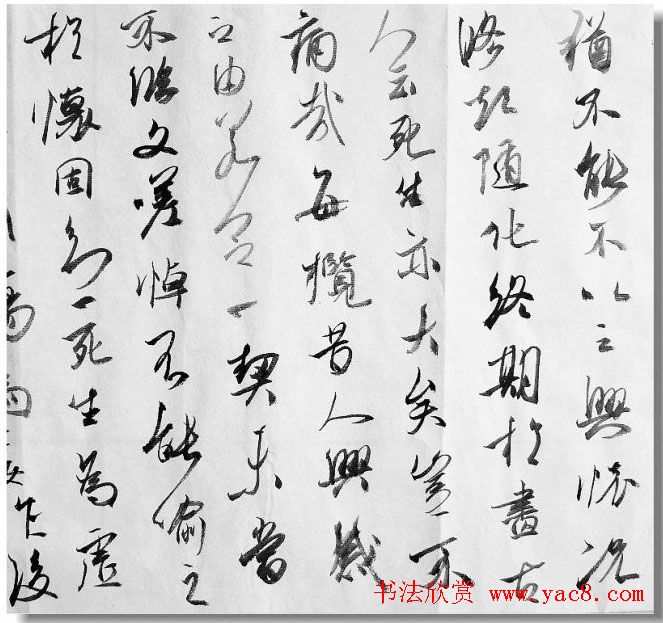 猶不能不以之興懷況
脩短隨化終期於盡古
人云死生亦大矣豈不
痛哉每攬昔人興感
之由若合一契未嘗
不臨文嗟悼不能喻之
於懷固知一死生為虛
後
书法欣赏 www.yac8.com